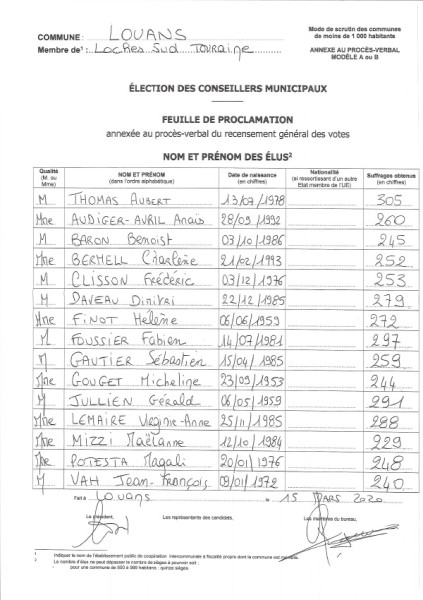 COMMUNE : LOUANS
Mode de scrutin des communes
de moins de 1 000 habitants
Membre de¹ : Loches Sud Touraine
ANNEXE AU PROCÈS-VERBAL
MODÈLE A ou B
ÉLECTION DES CONSEILLERS MUNICIPAUX
FEUILLE DE PROCLAMATION
annexée au procès-verbal du recensement général des votes
NOM ET PRÉNOM DES ÉLUS²
Qualité (M. ou Mme) NOM ET PRÉNOM (dans l'ordre alphabétique) Date de naissance (en chiffres) Nationalité (si ressortissant d'un autre Etat membre de l'UE) Suffrages obtenus (en chiffres)
M THOMAS Aubert 13/07/1978 305
Mne AUDIGER-AVRIL Anaïs 28/09/1992 260
M BARON Benoist 03/10/1986 245
Mne BERMELL Charlène 21/12/1993 252
M CLISSON Frédéric 03/12/1976 253
M DAVEAU Dimitri 22/12/1985 279
Mne FINOT Helène 06/06/1959 272
M FOUSSIER Fabien 14/07/1981 297
M GAUTIER Sébastien 15/04/1985 259
Mne GOUGET Micheline 23/09/1953 244
M JULLIEN Gérald 06/05/1959 291
Mne LEMAIRE Virginie-Anne 25/11/1985 288
Mne MIZZI Maëlanne 12/10/1984 229
Mne POTESTA Magali 20/01/1976 248
M VAH Jean-François 1972 240
Fait à Louans le 15 MARS 2020
Le président, Les représentants des candidats, Les membres du bureau,
¹ Indiquer le nom de l'établissement public de coopération intercommunale à fiscalité propre dont la commune est membre.
² Le nombre d'élus ne peut dépasser le nombre de sièges à pourvoir soit :
pour une commune de 500 à 999 habitants : quinze sièges.